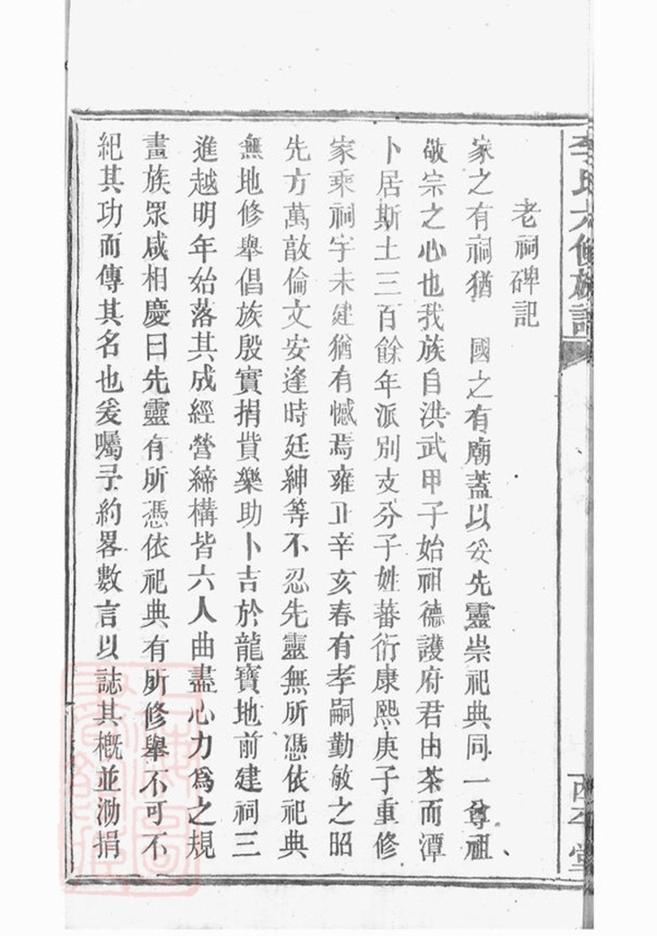 老祠碑記
家之有祠猶 國之有廟蓋以妥先靈崇祀典同一尊祖
敬宗之心也我族自洪武甲子始祖德護府君由茶而潭
卜居斯土三百餘年派別支分子姓蕃衍康熙庚子重修
家乘祠宇未建猶有憾焉雍正辛亥春有孝嗣勤敏之昭
先方萬敔倫文安逢時廷紳等不忍先靈無所憑依祀典
無地修舉倡族殷實捐貲樂助卜吉於龍寶地前建祠三
進越明年始落其成經營締構皆六人曲盡心力爲之規
畫族眾咸相慶曰先靈有所憑依祀典有所修舉不可不
紀其功而傳其名也爰囑予約畧數言以誌其概並泐捐